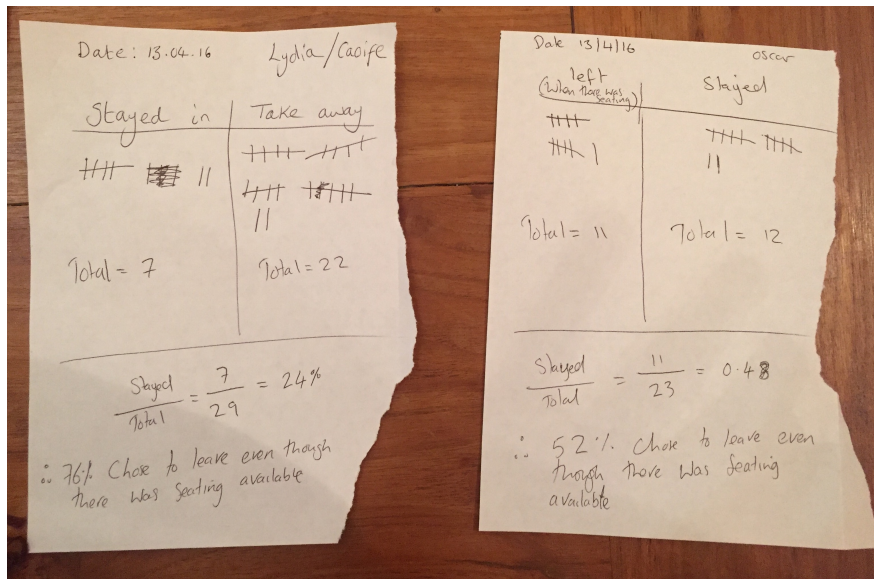 Date: 13.04.16
Lydia/Caoife
Stayed in
Take away
Total = 7
Total = 22
Stayed
Total
= 7
29
= 24%
∴ 76% Chose to leave even though
there was seating available
Date 13/4/16
oscar
left
(When there was
seating)
Stayed
Total = 11
Total = 12
Stayed
Total
= 11
23
= 0.48
∴ 52% Chose to leave even
though there was seating
available